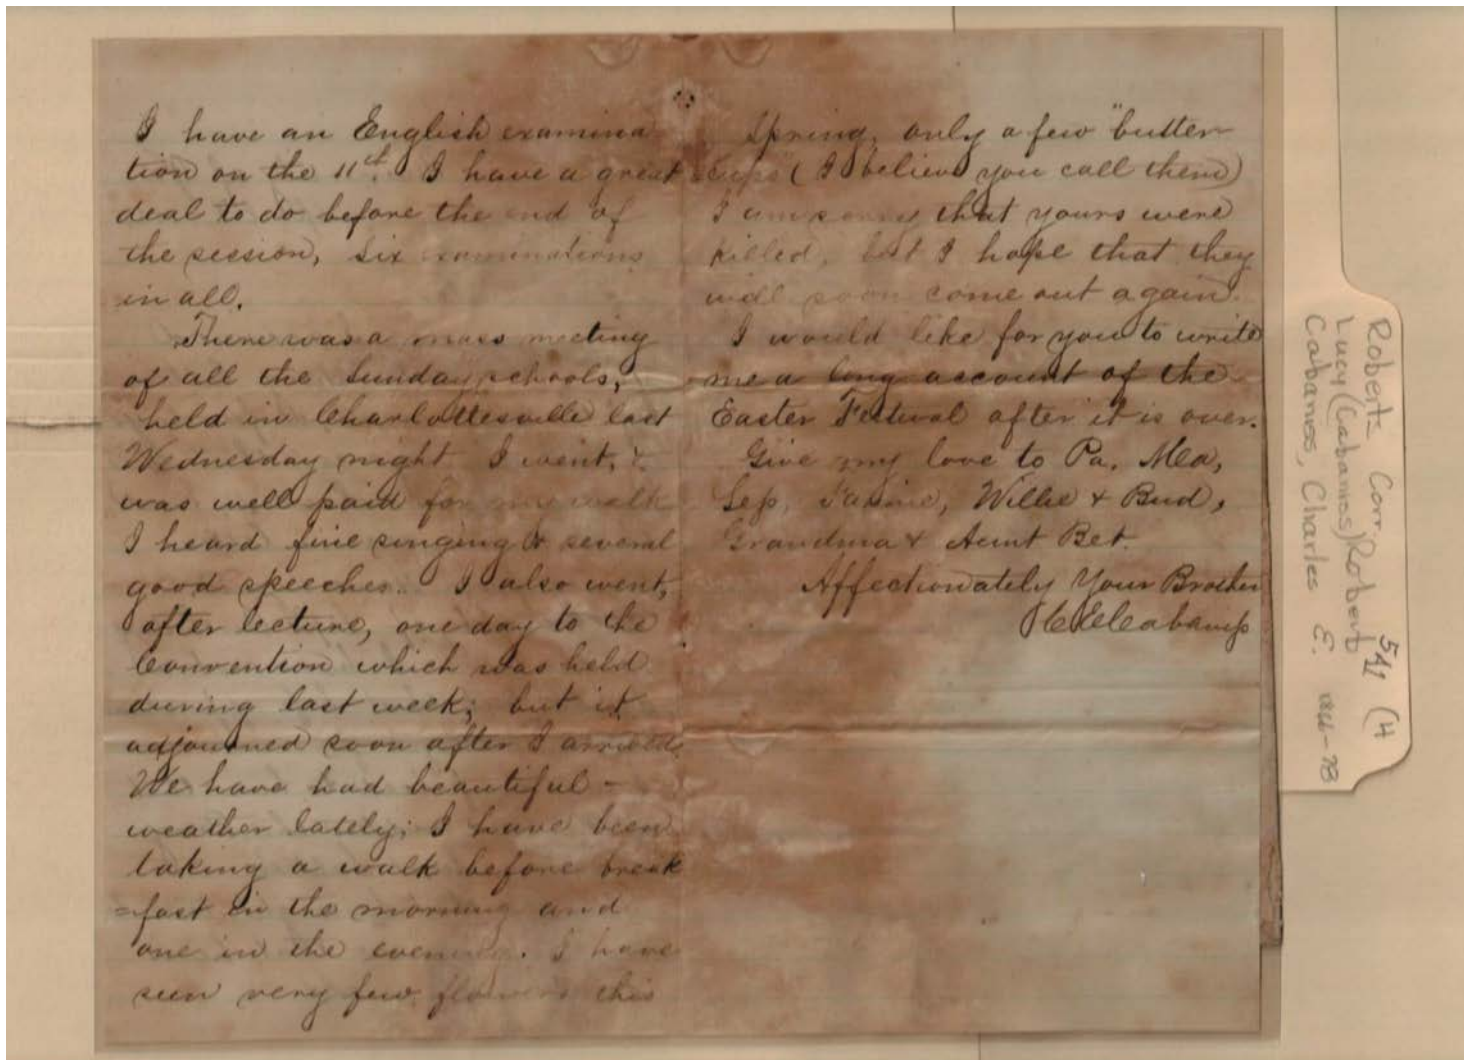 I have an English examina
tion on the 11th. I have a great
deal to do before the end of
the session, six examinations
in all.
There was a mass meeting
of all the Sunday schools,
held in Charlottesville last
Wednesday night I went, &
was well paid for my walk
I heard fine singing & several
good speeches. I also went,
after lecture, one day to the
Convention which was held
during last week; but it
adjourned soon after I arrived
We have had beautiful -
weather lately; I have been
taking a walk before break
=fast in the morning and
one in the evening. I have
seen very few flowers this
Spring, only a few "butter-
cups" (I believe you call them)
I am sorry that yours were
killed, but I hope that they
will soon come out again.
I would like for you to write
me a long account of the
Easter Festival after it is over.
Give my love to Pa, Ma,
Sep, Fannie, Willie & Bud,
Grandma & Aunt Bet.
Affectionately Your Brother
C E Cabaniss
Roberts Corr. 541 (4
Lucy (Cabaniss) Robert
Cabaniss, Charles E.